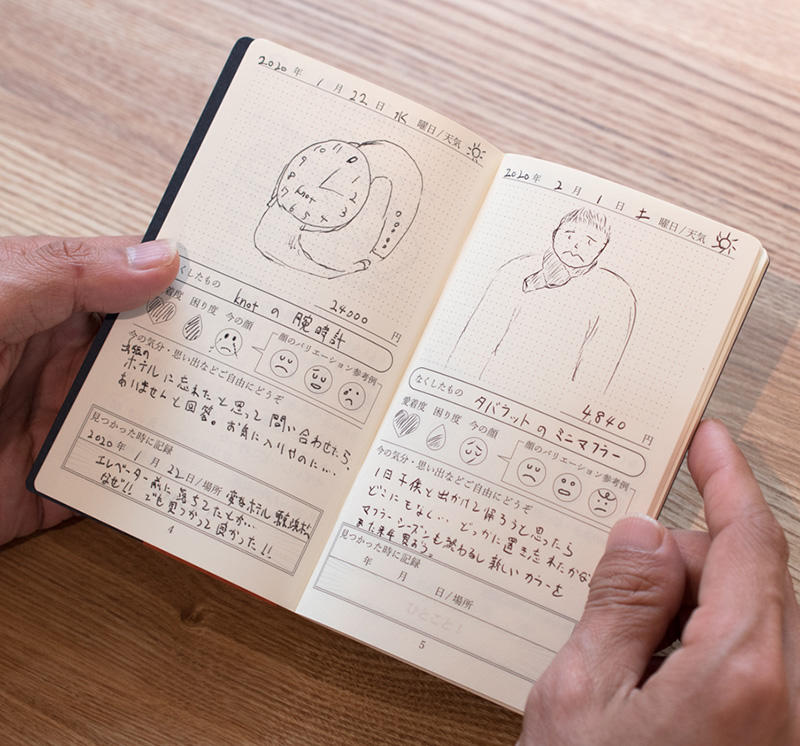 2020年 1月 22日 水 曜日/天気
11 0 1 2 3 4 5 6 7 8 9 10
knot
なくしたもの
knotの腕時計 24000円
愛着度 困り度 今の顔
顔のバリエーション参考例
今の気分・思い出などご自由にどうぞ
ホテルに忘れたと思って問い合わせたら、
ありませんと回答。お気に入りやのに…。
見つかった時に記録
2020年 1月 22日/場所 変なホテル
エレベーター前に落ちてたとか…
なぜ!! でも見つかって良かった!!
4
2020年 2月 1日 土 曜日/天気
なくしたもの
タバラットのミニマフラー 4,840円
愛着度 困り度 今の顔
顔のバリエーション参考例
今の気分・思い出などご自由にどうぞ
1日子供と出かけて帰ろうと思ったら
どこにもなし… どっかに置き忘れたかな
マフラーシーズンも終わるし新しいカラーを
また来年買おう。
見つかった時に記録
年 月 日/場所
5